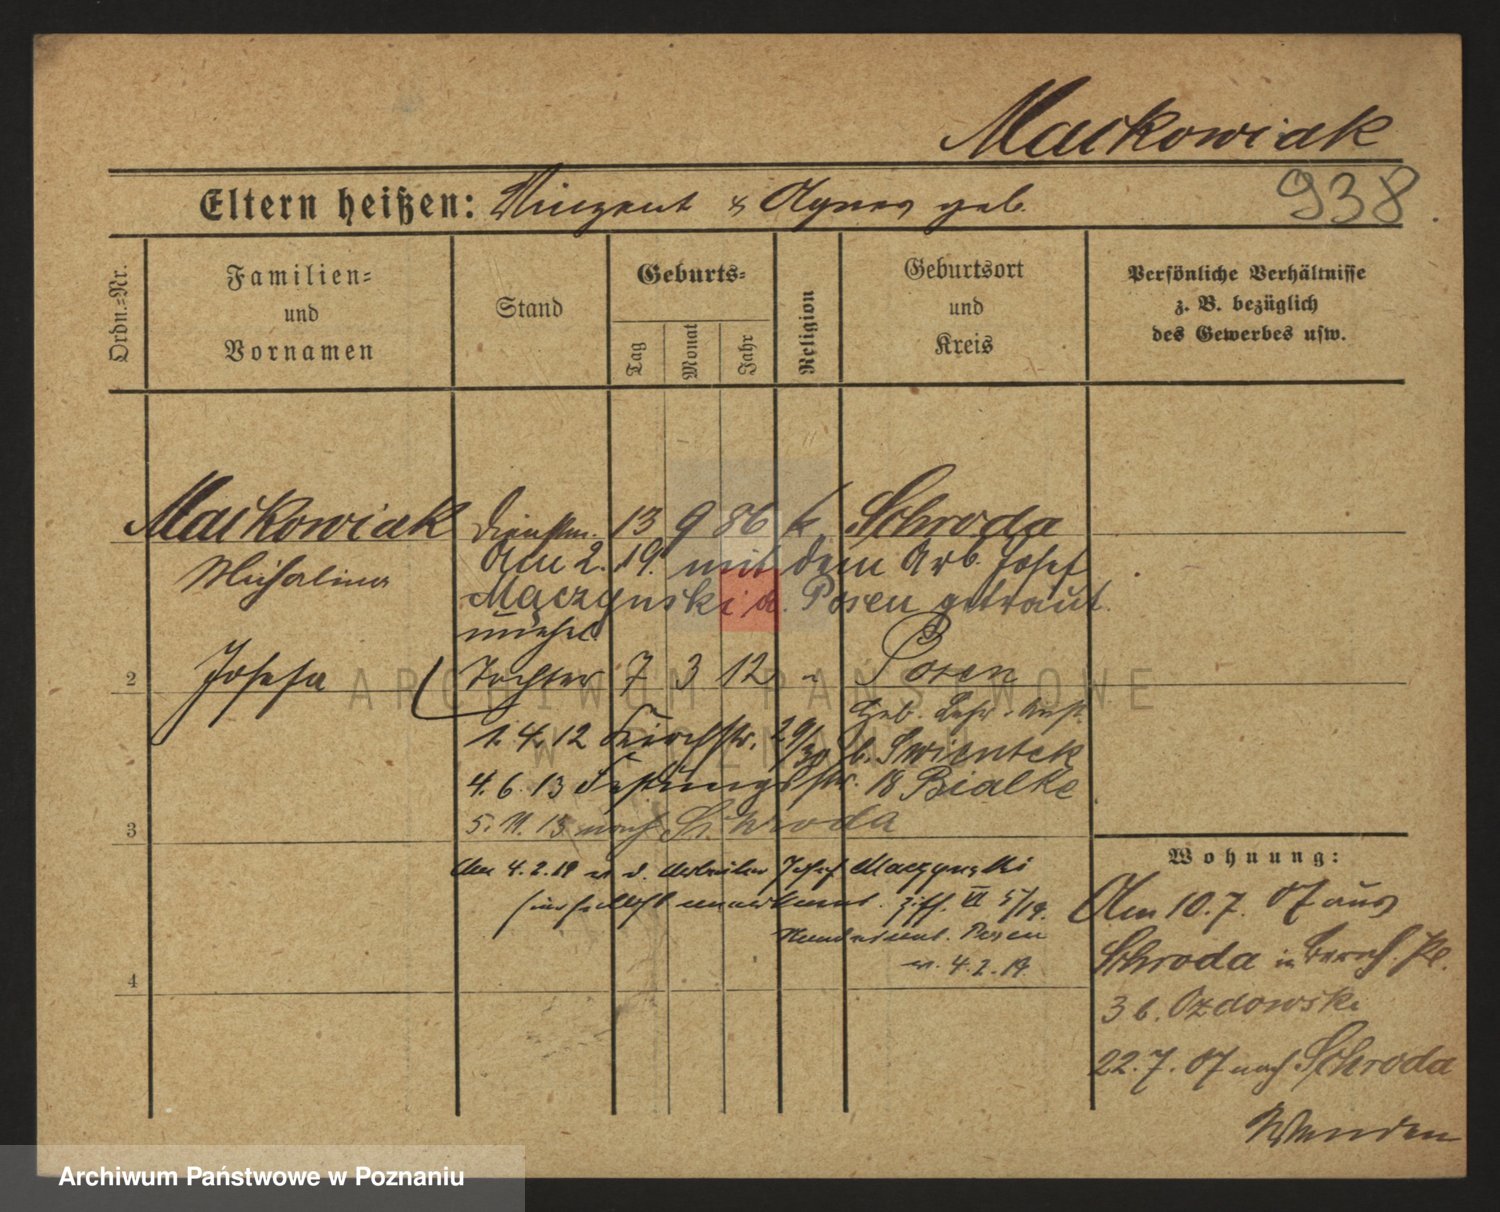 Mackowiak
Eltern heißen: Vinzent & Agnes geb.
938.
Ordn.=Nr.
Familien=
und
Vornamen
Stand
Geburts=
Tag
Monat
Jahr
Religion
Geburtsort
und
Kreis
Persönliche Verhältnisse
z. B. bezüglich
des Gewerbes usw.
Mackowiak Dienstm. 13 9 86 k. Schroda
Michalina
Am 2. 19. mit dem Arb. Josef
Mączynski a. Posen getraut.
unehel.
2 Josefa Tochter 7 3 12 " Posen
Heb. Lehr. Anst.
1. 4. 12 Kirchstr. 29/30 b. Swientek
4. 6. 13 Festungsstr. 18 Bialke
3 5. 11. 13 nach Schroda
Am 4.2.19 v. d. Arbeiter Josef Maczynski
anerkannt. Ziff. VI 5/19.
Standesamt. Posen
v. 4.2.19.
4
Wohnung:
Am 10.7. 07 aus
Schroda in Pl.
3 b. Ozdowski
22.7. 07 nach Schroda
Wenden
ARCHIWUM PAŃSTWOWE
W POZNANIU
Archiwum Państwowe w Poznaniu